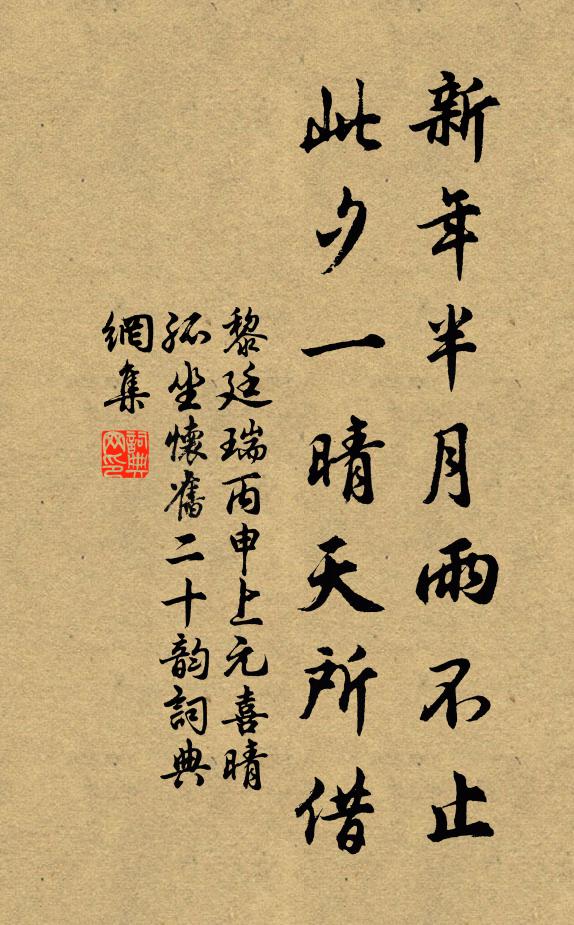 新年半月雨不止
此夕一晴天所借
黎廷瑞丙申上元喜晴
孤坐懷舊二十韵詞典
網集
詞典
网印